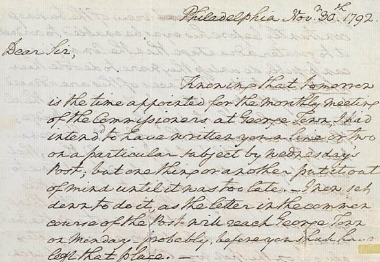 Philadelphia Nov. 30th. 1792.
Dear Sir,
Knowing that tomorrow
is the time appointed for the monthly meeting
of the Commissioners at George Town, I had
intend to have written you a line or two
on a particular subject by Wednesday's
Post; but one thing or another put it out
of mind until it was too late. I now set
down to do it, as the letter in the common
course of the Post will reach George Town
on Monday—probably, before you shall have
left that place.—